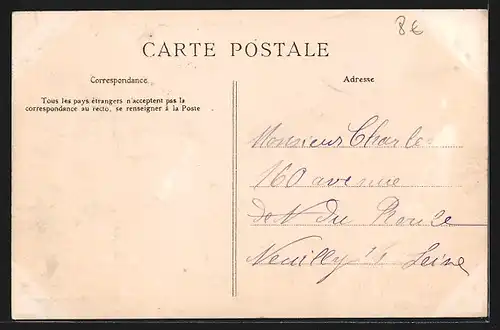 8€
CARTE POSTALE
Correspondance
Adresse
Tous les pays étrangers n'acceptent pas la
correspondance au recto, se renseigner à la Poste
Monsieur Charles
160 avenue
du Roule
Neuilly s/ Seine